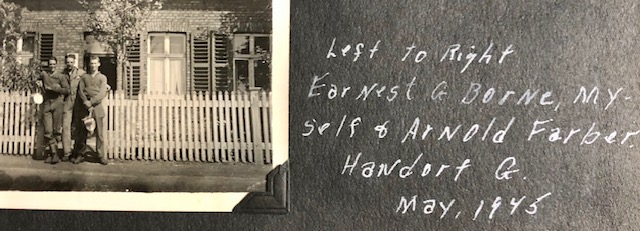 Left to Right
Earnest G Borne, My-
self & Arnold Farber.
Handorf G.
May, 1945